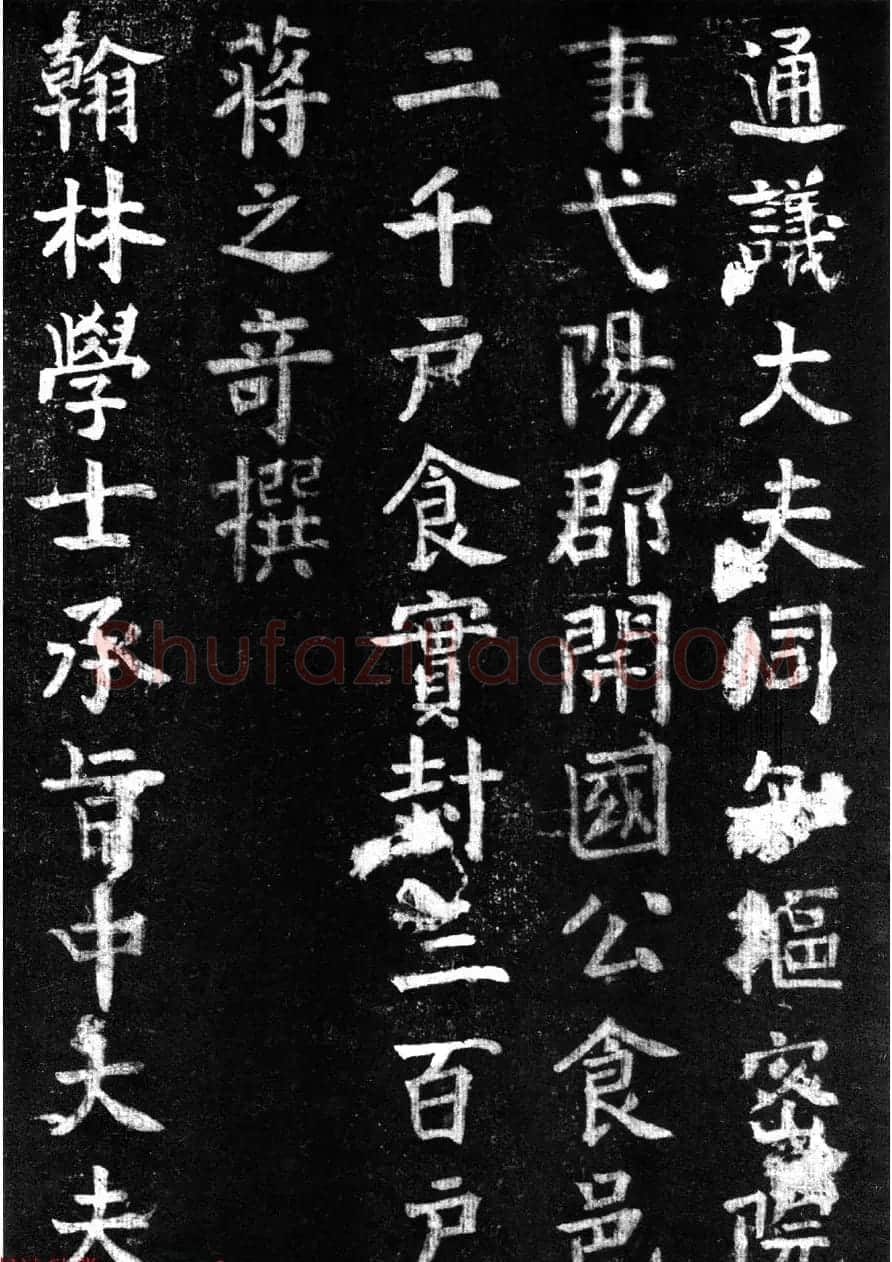 通議大夫同知樞密院
事弋陽郡開國公食邑
二千户食實封三百户
蔣之奇撰
翰林學士承旨中大夫
Shufaziliao.COM